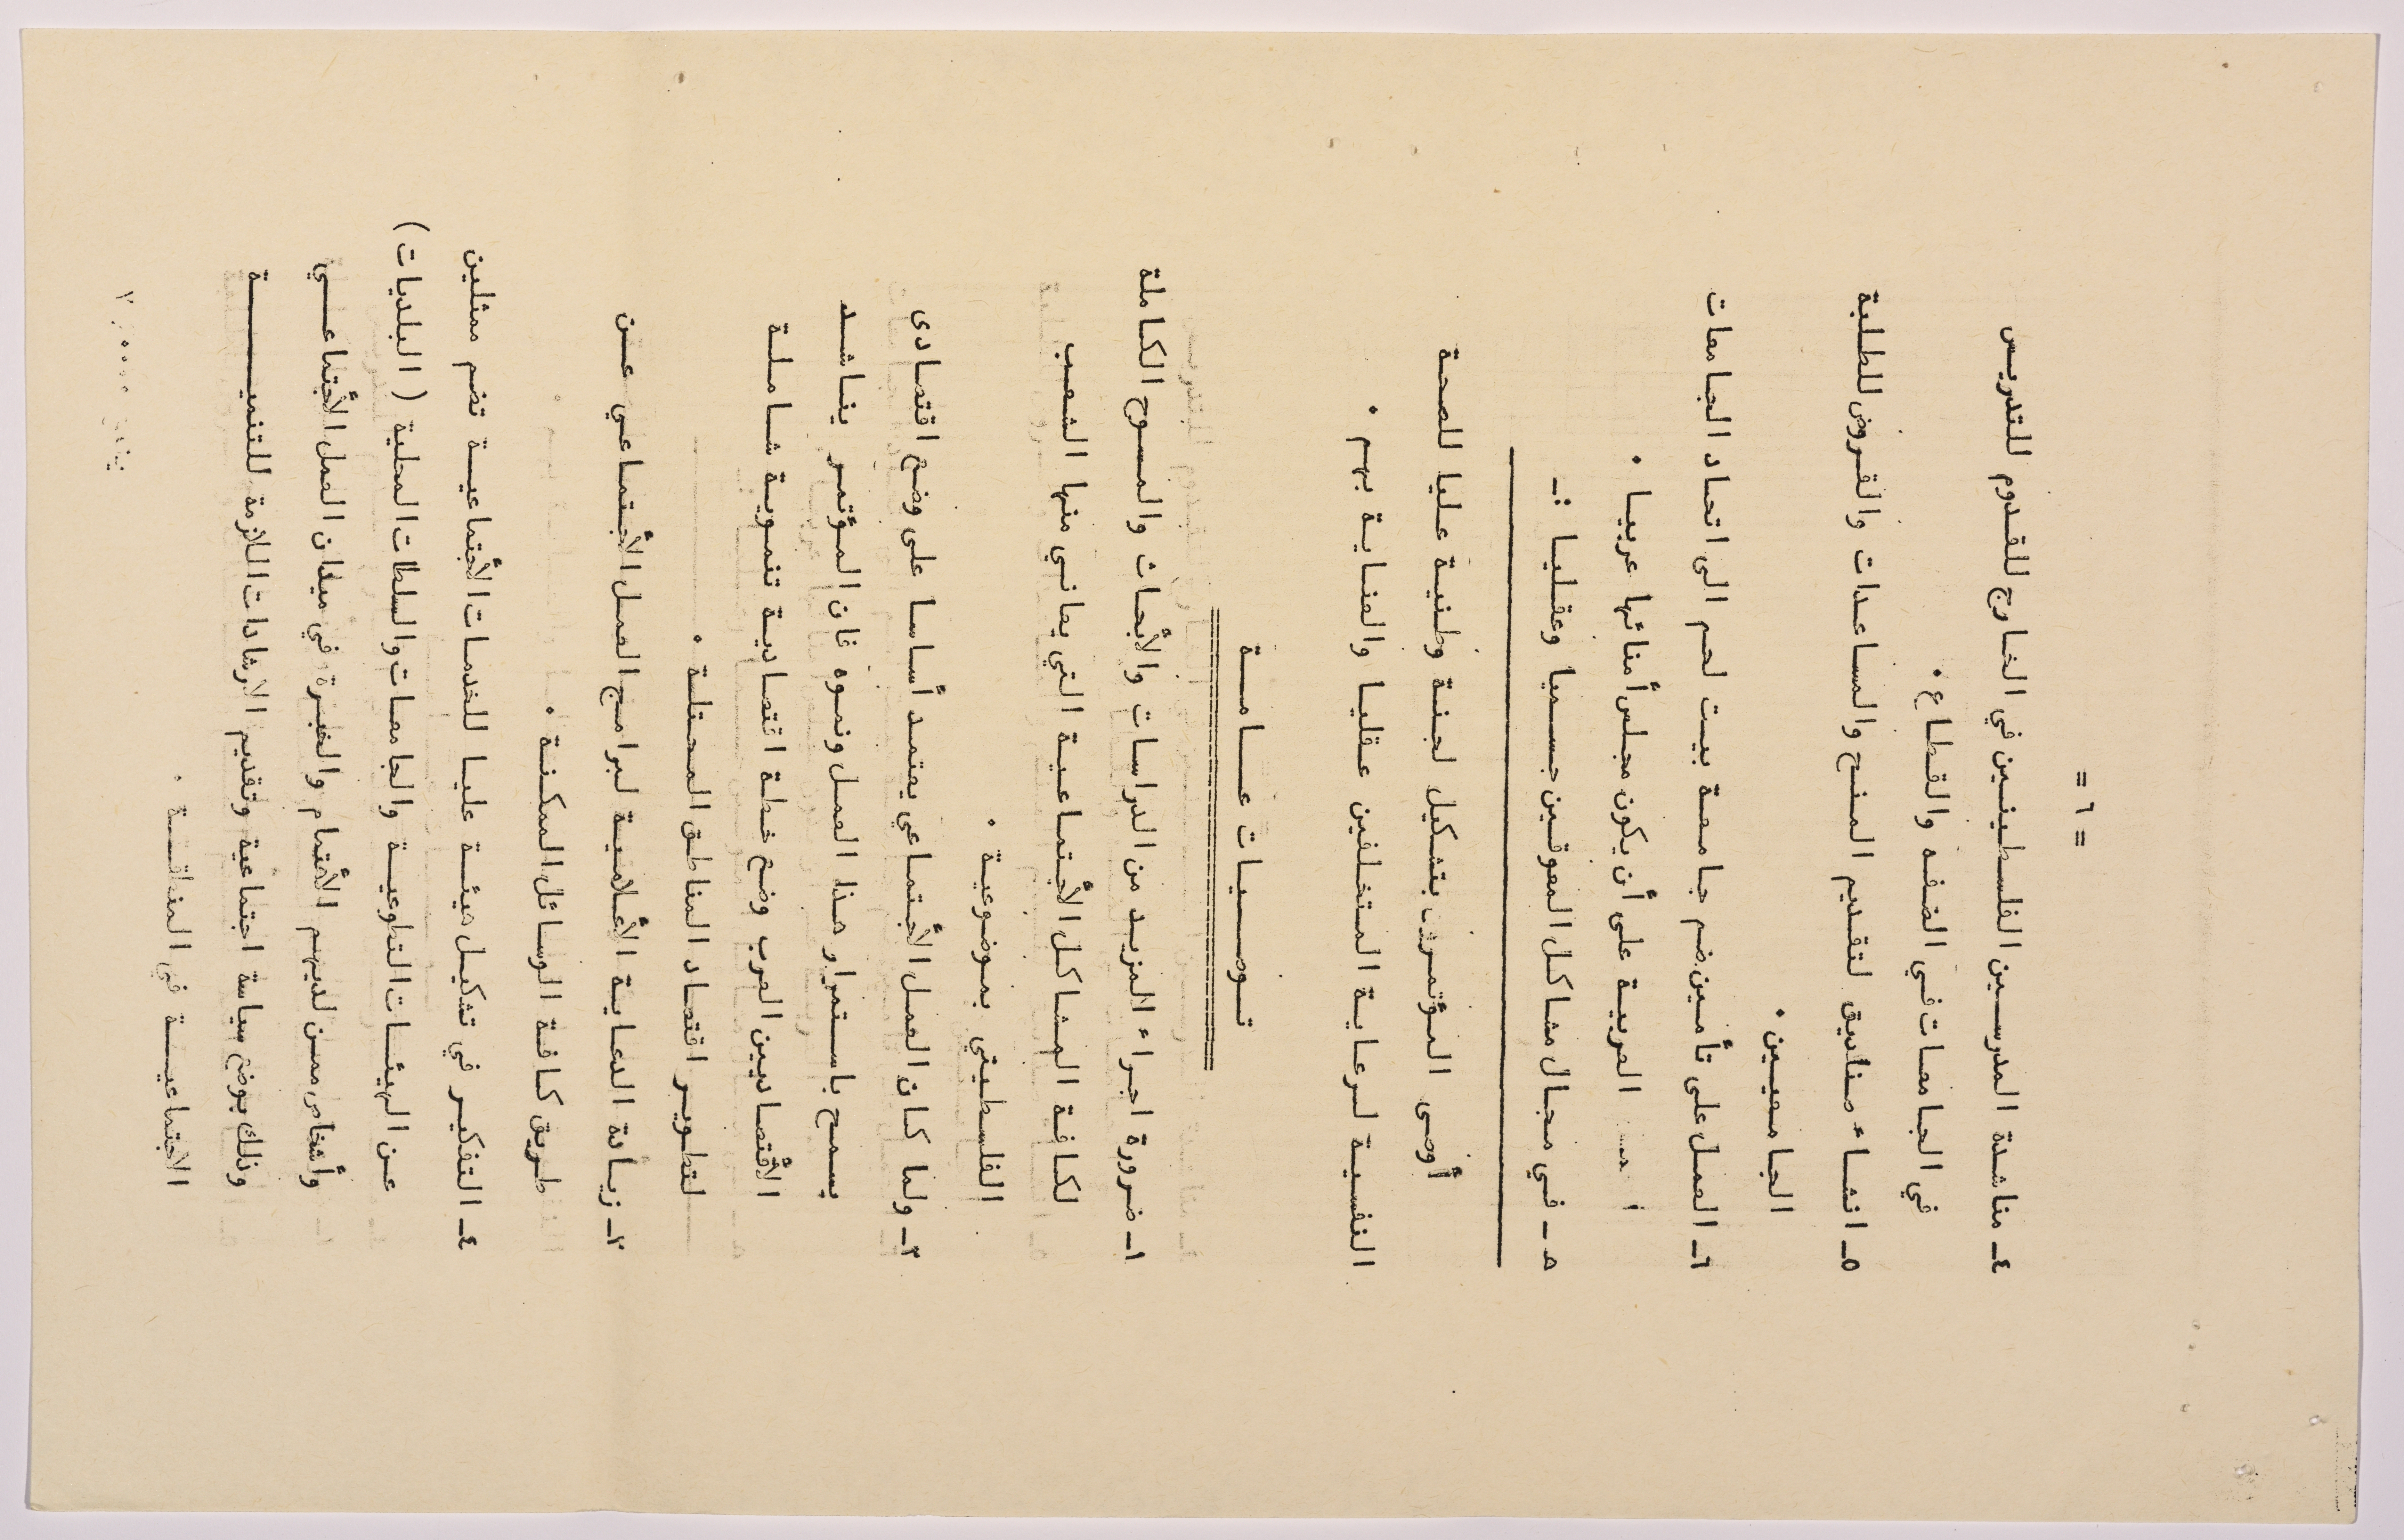 = ٦ =
٤ـ مناشدة المدرسين الفلسطينين في الخارج للقدوم للتدريس
في الجامعات في الضفه والقطاع .
٥ـ انشاء صناديق لتقديم المنح والمساعدات والقروض للطلبة
الجامعيين .
٦ـ العمل على تأمين ضم جامعة بيت لحم الى اتحاد الجامعات
العربية على أن يكون مجلس أمنائها عربيا .
٥ ـ في مجال مشاكل المعوقين جسميا وعقليا :ـ
أوصى المؤتمرون بتشكيل لجنة وطنية عليا للصحة
النفسية لرعاية المتخلفين عقليا والعناية بهم .
توصيات عامة
١ـ ضرورة اجراء المزيد من الدراسات والأبحاث والمسوح الكاملة
لكافة المشاكل الأجتماعية التي يعاني منها الشعب
الفلسطيني بموضوعية .
٢ـ ولما كان العمل الأجتماعي يعتمد أساسا على وضع اقتصادى
يسمح باستمرار هذا العمل ونموه فان المؤتمر يناشد
الأقتصاديين العرب وضع خطة اقتصادية تنموية شاملة
لتطوير اقتصاد المناطق المحتلة .
٣ـ زيادة الدعاية الأعلامية لبرامج العمل الأجتماعي عن
طريق كافة الوسائل الممكنة .
٤ـ التفكير في تشكيل هيئة عليا للخدمات الأجتماعية تضم ممثلين
عن الهيئات التطوعية والجامعات والسلطات المحلية ( البلديات )
وأشخاص ممن لديهم الأهتمام والخبرة في ميدان العمل الأجتماعي
وذلك بوضع سياسة اجتماعية وتقديم الارشادات اللازمة للتنمية
الاجتماعية في المنطقة .